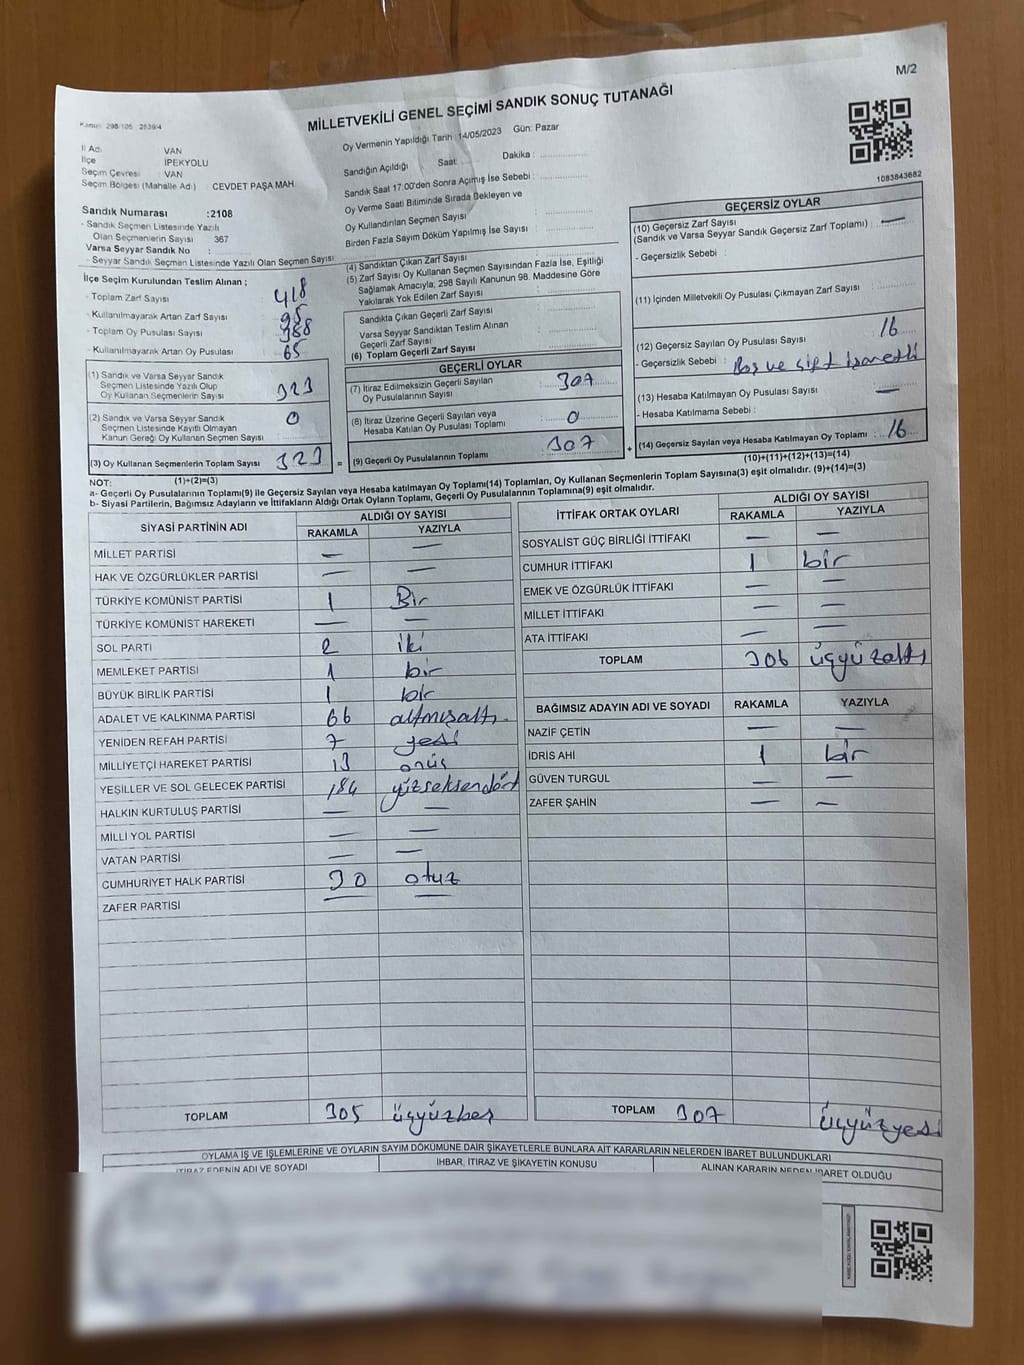 M/2
Kanun: 298/105 2839/4
MİLLETVEKİLİ GENEL SEÇİMİ SANDIK SONUÇ TUTANAĞI
İl Adı VAN
İlçe İPEKYOLU
Seçim Çevresi : VAN
Seçim Bölgesi (Mahalle Adı) CEVDET PAŞA MAH
Oy Vermenin Yapıldığı Tarih :14/05/2023 Gün: Pazar
Sandığın Açıldığı Saat: Dakika :
Sandık Saat 17:00'den Sonra Açılmış İse Sebebi :
Oy Verme Saati Bitiminde Sırada Bekleyen ve
Oy Kullandırılan Seçmen Sayısı :
Birden Fazla Sayım Döküm Yapılmış İse Sayısı :
1083843682
Sandık Numarası :2108
- Sandık Seçmen Listesinde Yazılı
Olan Seçmenlerin Sayısı 367
Varsa Seyyar Sandık No :
- Seyyar Sandık Seçmen Listesinde Yazılı Olan Seçmen Sayısı
İlçe Seçim Kurulundan Teslim Alınan ;
- Toplam Zarf Sayısı : 418
- Kullanılmayarak Artan Zarf Sayısı : 95
- Toplam Oy Pusulası Sayısı : 388
- Kullanılmayarak Artan Oy Pusulası : 65
(1) Sandık ve Varsa Seyyar Sandık
Seçmen Listesinde Yazılı Olup
Oy Kullanan Seçmenlerin Sayısı : 323
(2) Sandık ve Varsa Seyyar Sandık
Seçmen Listesinde Kayıtlı Olmayan
Kanun Gereği Oy Kullanan Seçmen Sayısı : 0
(3) Oy Kullanan Seçmenlerin Toplam Sayısı : 323 =
(1)+(2)=(3)
(4) Sandıktan Çıkan Zarf Sayısı :
(5) Zarf Sayısı Oy Kullanan Seçmen Sayısından Fazla İse, Eşitliği
Sağlamak Amacıyla, 298 Sayılı Kanunun 98. Maddesine Göre
Yakılarak Yok Edilen Zarf Sayısı :
Sandıkta Çıkan Geçerli Zarf Sayısı :
Varsa Seyyar Sandıktan Teslim Alınan
Geçerli Zarf Sayısı :
(6) Toplam Geçerli Zarf Sayısı :
GEÇERLİ OYLAR
(7) İtiraz Edilmeksizin Geçerli Sayılan
Oy Pusulalarının Sayısı : 307
(8) İtiraz Üzerine Geçerli Sayılan veya
Hesaba Katılan Oy Pusulası Toplamı : 0
(9) Geçerli Oy Pusulalarının Toplamı : 307 +
GEÇERSİZ OYLAR
(10) Geçersiz Zarf Sayısı : —
(Sandık ve Varsa Seyyar Sandık Geçersiz Zarf Toplamı)
- Geçersizlik Sebebi :
(11) İçinden Milletvekili Oy Pusulası Çıkmayan Zarf Sayısı :
(12) Geçersiz Sayılan Oy Pusulası Sayısı : 16
- Geçersizlik Sebebi : Boş ve çift işaretli
(13) Hesaba Katılmayan Oy Pusulası Sayısı : —
- Hesaba Katılmama Sebebi :
(14) Geçersiz Sayılan veya Hesaba Katılmayan Oy Toplamı : 16
(10)+(11)+(12)+(13)=(14)
NOT:
a- Geçerli Oy Pusulalarının Toplamı(9) ile Geçersiz Sayılan veya Hesaba katılmayan Oy Toplamı(14) Toplamları, Oy Kullanan Seçmenlerin Toplam Sayısına(3) eşit olmalıdır. (9)+(14)=(3)
b- Siyasi Partilerin, Bağımsız Adayların ve İttifakların Aldığı Ortak Oyların Toplamı, Geçerli Oy Pusulalarının Toplamına(9) eşit olmalıdır.
SİYASİ PARTİNİN ADI ALDIĞI OY SAYISI
RAKAMLA YAZIYLA
MİLLET PARTİSİ — —
HAK VE ÖZGÜRLÜKLER PARTİSİ — —
TÜRKİYE KOMÜNİST PARTİSİ 1 Bir
TÜRKİYE KOMÜNİST HAREKETİ — —
SOL PARTİ 2 iki
MEMLEKET PARTİSİ 1 bir
BÜYÜK BİRLİK PARTİSİ 1 bir
ADALET VE KALKINMA PARTİSİ 66 altmışaltı
YENİDEN REFAH PARTİSİ 7 yedi
MİLLİYETÇİ HAREKET PARTİSİ 13 onüç
YEŞİLLER VE SOL GELECEK PARTİSİ 184 yüzseksendört
HALKIN KURTULUŞ PARTİSİ — —
MİLLİ YOL PARTİSİ — —
VATAN PARTİSİ — —
CUMHURİYET HALK PARTİSİ 30 otuz
ZAFER PARTİSİ — —
TOPLAM 305 üçyüzbeş
İTTİFAK ORTAK OYLARI ALDIĞI OY SAYISI
RAKAMLA YAZIYLA
SOSYALİST GÜÇ BİRLİĞİ İTTİFAKI — —
CUMHUR İTTİFAKI 1 bir
EMEK VE ÖZGÜRLÜK İTTİFAKI — —
MİLLET İTTİFAKI — —
ATA İTTİFAKI — —
TOPLAM 306 üçyüzaltı
BAĞIMSIZ ADAYIN ADI VE SOYADI RAKAMLA YAZIYLA
NAZİF ÇETİN — —
İDRİS AHİ 1 bir
GÜVEN TURGUL — —
ZAFER ŞAHİN — —
TOPLAM 307 üçyüzyedi
OYLAMA İŞ VE İŞLEMLERİNE VE OYLARIN SAYIM DÖKÜMÜNE DAİR ŞİKAYETLERLE BUNLARA AİT KARARLARIN NELERDEN İBARET BULUNDUKLARI
İTİRAZ EDENİN ADI VE SOYADI İHBAR, İTİRAZ VE ŞİKAYETİN KONUSU ALINAN KARARIN NEDEN İBARET OLDUĞU